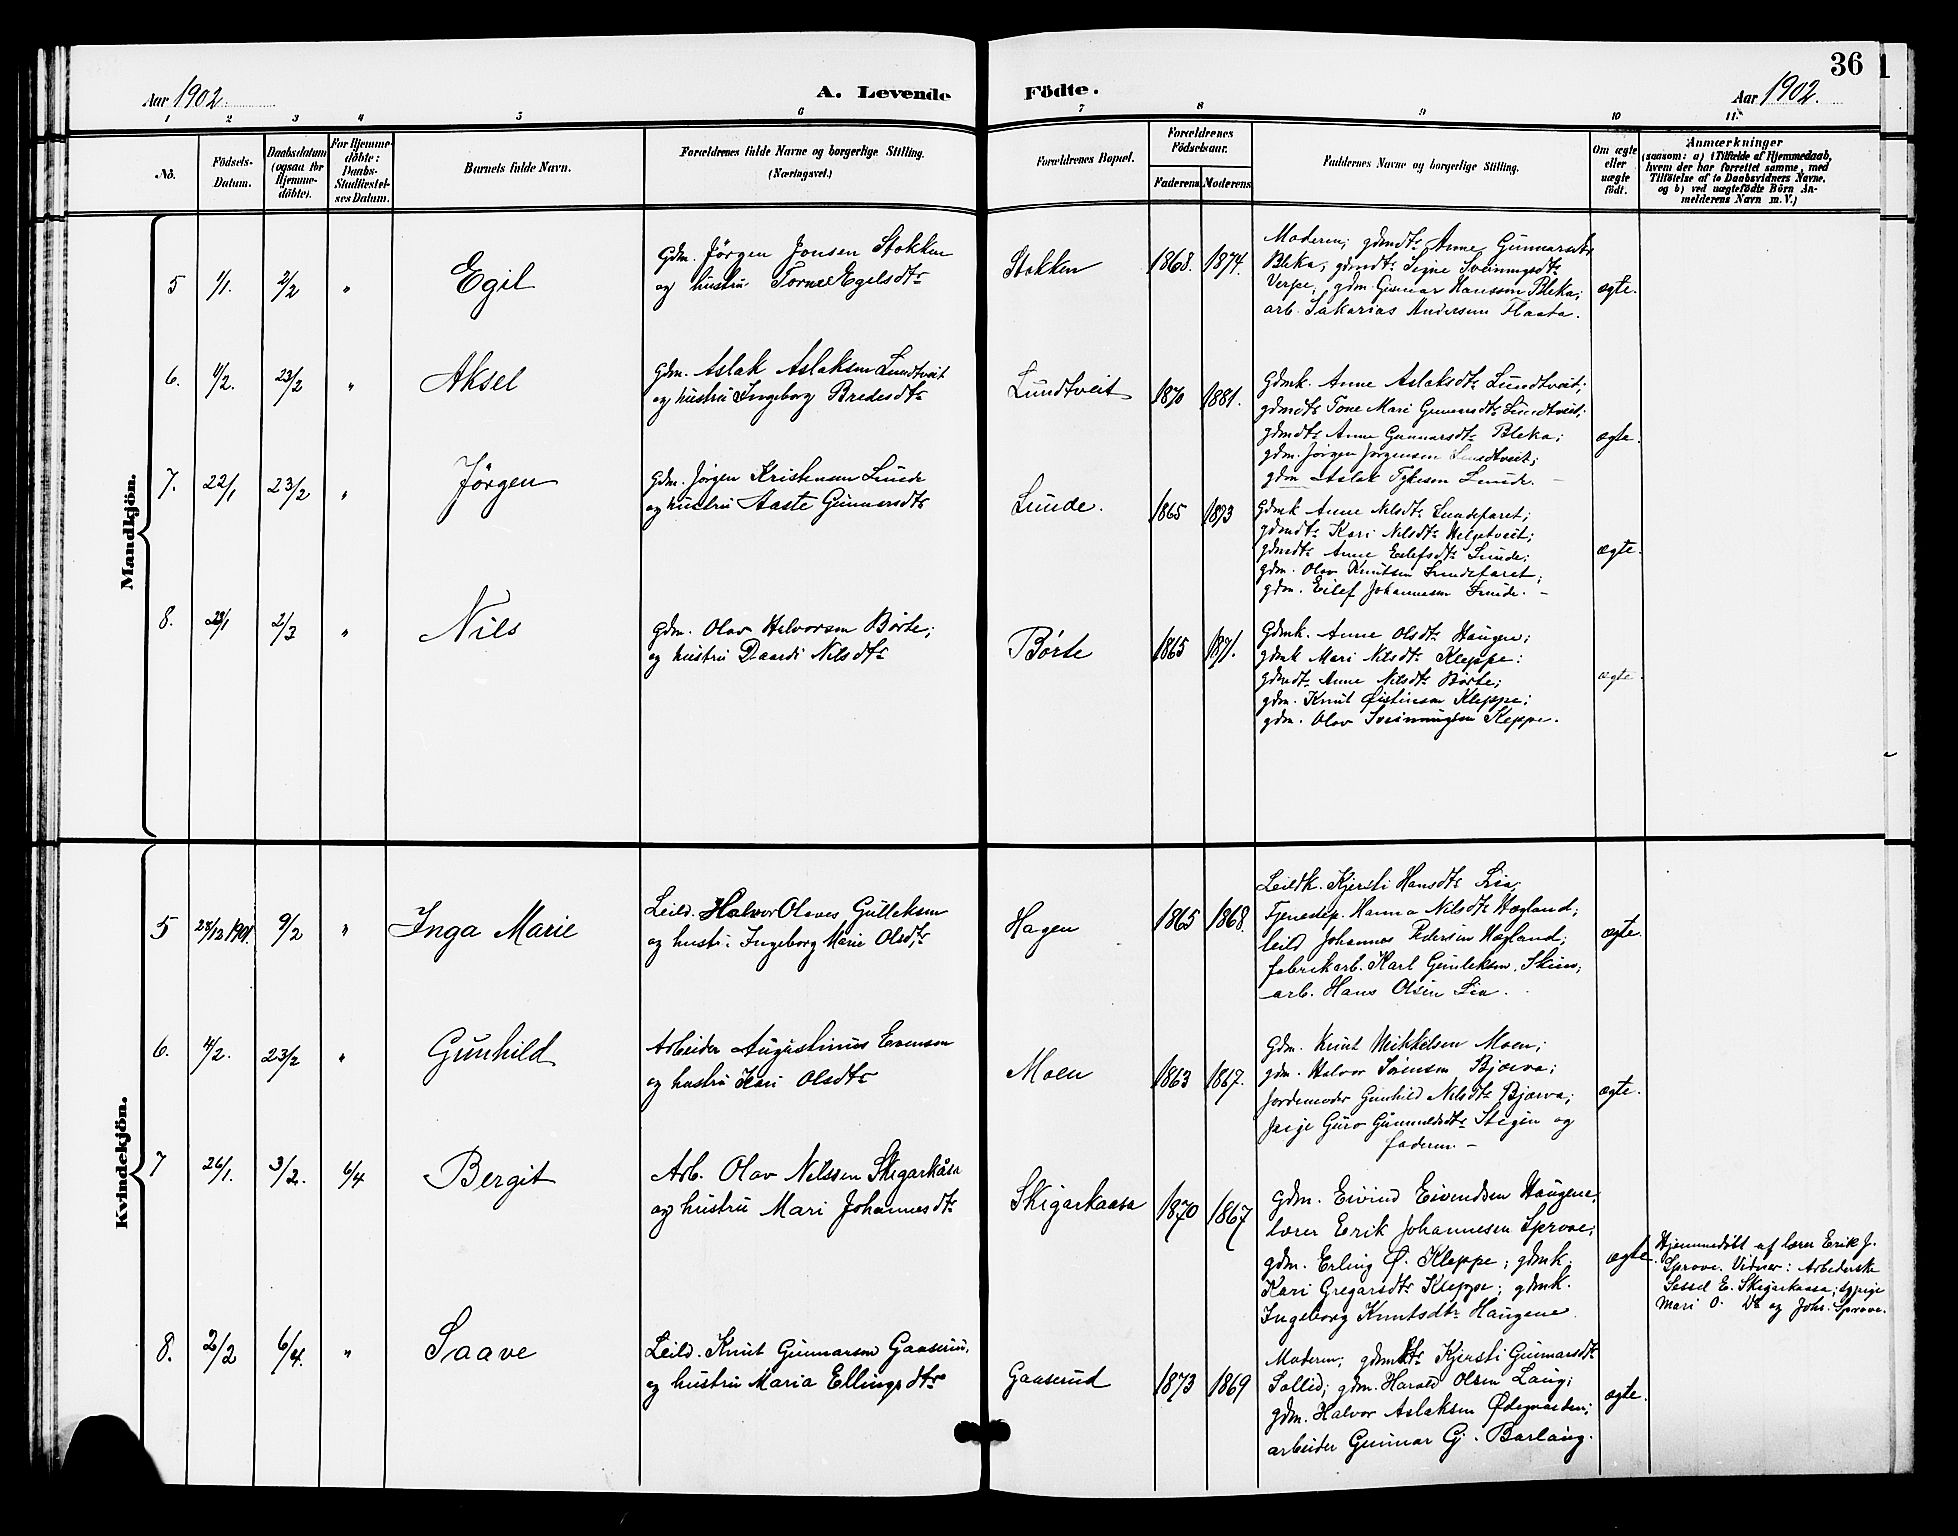 36
Aar 1902.
A. Levende Födte.
Aar 1902.
1 2 3 4 5 6 7 8 9 10 11
No.
Födsels-Datum.
Daabsdatum (ogsaa for Hjemme-döbte).
For Hjemme-döbte: Daabs-Stadfæstel-ses Datum.
Barnets fulde Navn.
Forældrenes fulde Navne og borgerlige Stilling.
(Næringsvei.)
Forældrenes Bopæl.
Forældrenes Födselsaar.
Faderens Moderens
Faddernes Navne og borgerlige Stilling.
Om ægte eller uægte födt.
Anmærkninger
(saasom: a) i Tilfælde af Hjemmedaab,
hvem der har forrettet samme, med
Tilföielse af to Daabsvidners Navne,
og b) ved uægtefödte Börn An-
melderens Navn m. V.)
Mandkjön.
5 1/1. 2/2 " Egil
Gdm. Jörgen Jonsen Stokken
og hustru Torne Egilsdtr
Stokken 1868. 1874.
Moderen; gdmdtr Anne Gunnarsdtr
Bleka; gdmdtr Signe Sveinungsdtr
Verpe; gdm. Gunnar Hansson Bleka;
arb. Sakarias Andersen Flaata.
ægte.
6. 1/2. 23/2 " Aksel
Gdm. Aslak Aslaksen Lundtveit
og hustru Ingeborg Bredesdtr
Lundtveit 1870 1881.
Gdmk. Anne Aslaksdtr Lundtveit;
gdmdtr Tone Mari Gunnarsdtr Lundtveit;
gdmdtr Anne Gunnarsdtr Bleka;
gdm. Jörgen Jörgensen Lundtveit;
gdm Aslak Tykesen Lunde. –
ægte.
7. 22/1 23/2 " Jörgen
Gdm. Jörgen Kristensen Lunde
og hustru Aaste Gunnarsdtr
Lunde. 1865 1873
Gdmk Anne Nilsdtr Lundefaret;
gdmdtr Kari Nilsdtr Helgetveit;
gdmdtr Anne Eilefsdtr Lunde;
gdm. Olav Knutsen Lundefaret;
gdm. Eilef Johannesen Lunde. –
ægte.
8. 29/1 2/3 " Nils
Gdm. Olav Halvorsen Börte;
og hustru Daardi Nilsdtr
Börte 1865 1871.
Gdmk. Anne Olsdtr Haugen;
gdmk Mari Nilsdtr Kleppe;
gdmdtr Anne Nilsdtr Börte;
gdm. Knut Øistensen Kleppe;
gdm. Olav Sveinungsen Kleppe.
ægte.
Kvindekjön.
5 28/12 1901. 9/2 " Inga Marie
Leild. Halvor Olaves Gulleksen
og hustr. Ingeborg Marie Olsdtr
Hagen 1865 1868.
Leildk. Kjersti Hansdtr Lia;
Tjenestep. Hanna Nilsdtr Hægland;
leild Johannes Pedersen Hægland;
fabrikarb. Karl Gunleksen, Skien;
arb. Hans Olsen Lia.
ægte.
6. 4/2. 23/2 " Gunhild
Arbeider Augustinus Evensen
og hustru Kari Olsdtr
Moen 1863 1867.
Gdm. Knut Mikkelsen Moen;
gdm. Halvor Sörensen Bjærva;
Jordemoder Gunhild Nilsdtr Bjærva;
pige Guro Gunnulsdtr Stigen og
faderen. –
ægte.
7 26/1. 3/2. 6/4 Bergit
Arb. Olav Nilssen Skigarkåsa
og hustru Mari Johannesdtr
Skigarkaasa 1870 1867
Gdm. Eivind Eivendsen Haugene;
lærer Erik Johannesen Sprove;
gdm. Erling Ø. Kleppe; gdmk.
Kari Gregarsdtr Kleppe; gdmk.
Ingeborg Knutsdtr Haugene
ægte.
Hjemmedöbt af lærer Erik J.
Sprove. Vidner: Arbederske
Sessel E. Skigarkaasa; sypige
Mari O. Do og Johs. Sprove.
8. 2/2 6/4 " Saave
Leild. Knut Gunnarson Gaaserud,
og hustru Maria Ellingsdtr
Gaaserud 1873 1869
Moderen; gdmdtr Kjersti Gunnarsdtr
Sollid; gdm. Harald Olsen Laug;
gdm. Halvor Aslaksen Ødegaarden;
arbeider Gunnar Gj. Barlaug.
ægte.